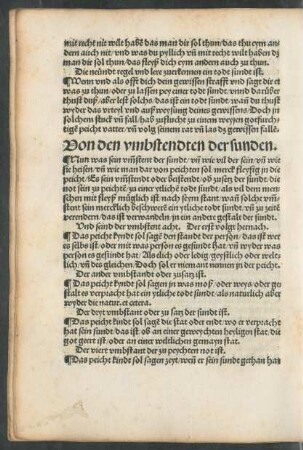 mit recht nit wilt habē das man dir sol thun / das thu eym an
dern auch nit / vnd was du pyllich vn̄ mit recht wilt haben dz
man dir sol thun / das fleyß dich eym andern auch zu thun.
Die neündt regel vnd leer zuerkennen ein tod sündt ist.
¶Wenn vnd als offt dich dein gewissen strafft vnd sagt dir et
was zu thun / oder zu lassen pey einer tod sündt / vnnd darüber
thust duß / aber lest solichs / das ist ein tod sündt / wān du thust
wyder das vrteyl vnd auff weysung deines gewissens. Doch in
solchem stuck vn̄ fall / hab zuflucht zu einem weysen gotsfurch-
tigen peicht vatter / vn̄ volg seinem rat vn̄ las dz gewissen fallē.
Von den vmbstendten der sunden.
¶Nun was sein vm̄stent der sündt / vn̄ wie vil der sein / vn̄ wie
sie heisen / vn̄ wie man dar von peichten sol merck fleysig in die
peicht. Es sein vm̄stendt oder beistendt / od zusetz der sündt / die
not sein zu peichtē / zu einer ytlichē tod sündt / als vil dem men-
schen mit fleyß müglich ist nach seem stant / wān solche vm̄-
stent sein mercklich beschwerē ein ytliche tod sündt / vn̄ zu zeit
verendern / das ist verwandeln / in ein ander gestalt der sündt.
Vnd seind der vmbstent acht. Der erst volgt hernach.
¶Das peicht kyndt sol sagē den standt der person / das ist wer
es selbs ist / oder mit was person es gesündt hat / vn̄ wyder was
person es gesindt hat / Als elich oder ledig / geystlich oder welt-
lich / vn̄ des gleichen. Doch sol er niemant nennen in der peicht.
Der ander vmbstandt oder zusatz ist.
¶Das peicht kyndt sol sagen in was moß / oder weys / oder ge
stalt es verpracht hat ein ytliche tod sündt / als naturlich aber
wyder die natur. et cetera.
Der dryt vmbstant oder zu satz der sundt ist.
¶Das peicht kyndt sol sagē die stat oder endt / wo er verpracht
hat sein sundt / das ist ob an einer geweychten heyligen stat / die
got geert ist / oder an einer weltlichen gemayn stat.
Der viert vmbstant der zu peychten not ist.
¶Das peicht kindt sol sagen zeyt / wen̄ er sein sundt gethan han